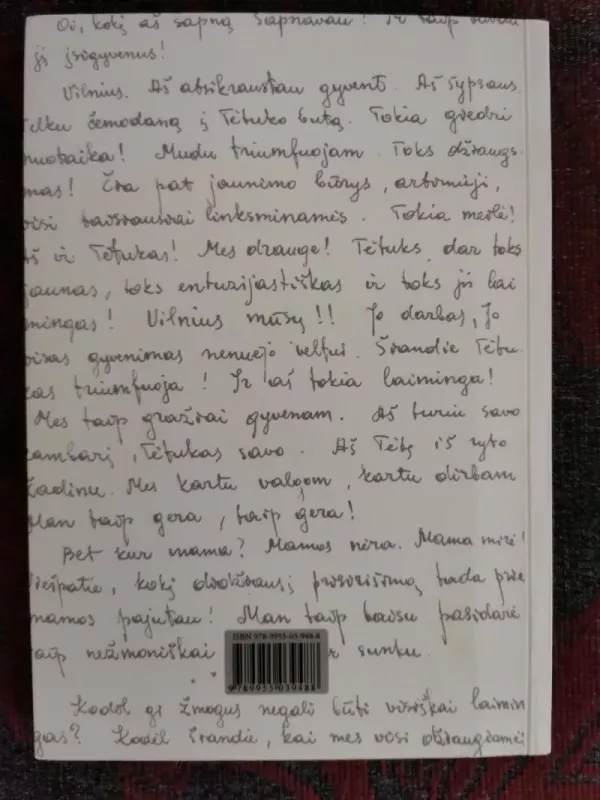 Oi, kokį aš sapną sapnavau! Ir taip
jį įsigyvenus!
Vilnius. Aš atsikraustau gyvent. Aš šypsaus.
Velku čemodaną į Tėtuko butą. Tokia giedri
nuotaika! Mudu triumfuojam. Toks džiaugs
mas! Čia pat jaunimo būrys, artimieji,
visi baisiausiai linksminamės. Tokia meilė!
Aš ir Tėtukas! Mes drauge! Tėtuks dar toks
jaunas, toks entuzijastiškas ir toks jis lai
mingas! Vilnius mūsų!! Jo darbas, Jo
visas gyvenimas nenuėjo veltui. Šiandie Tėtu
kas triumfuoja! Ir aš tokia laiminga!
Mes taip gražiai gyvenam. Aš turiu savo
kambarį, Tėtukas savo. Aš Tėtę iš ryto
žadinu. Mes kartu valgom, kartu dirbam
Man taip gera, taip gera!
Bet kur mama? Mamos nėra. Mama mirė!
Viešpatie, kokį didžiausį prisirišimą tada prie
mamos pajutau! Man taip baisu pasidarė
taip nežmoniškai sunku.
ISBN 978-9955-03-948-8
9 789955 039488
Kodėl gi žmogus negali būti visiškai laimin
gas? Kodėl šiandie, kai mes visi džiaugiamės